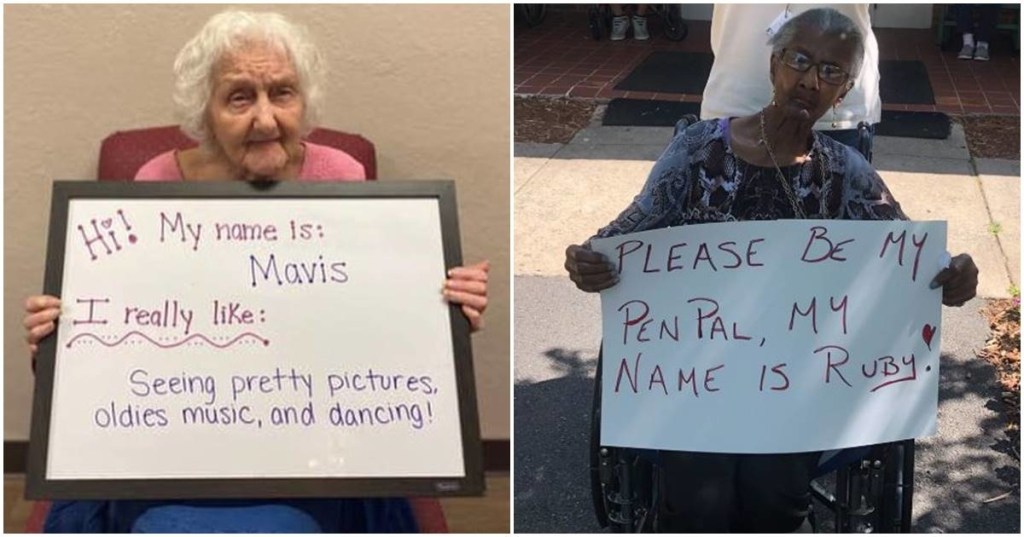 Hi! My name is:
Mavis
I really like:
Seeing pretty pictures,
oldies music, and dancing!
PLEASE BE MY
PENPAL, MY
NAME IS RUBY!